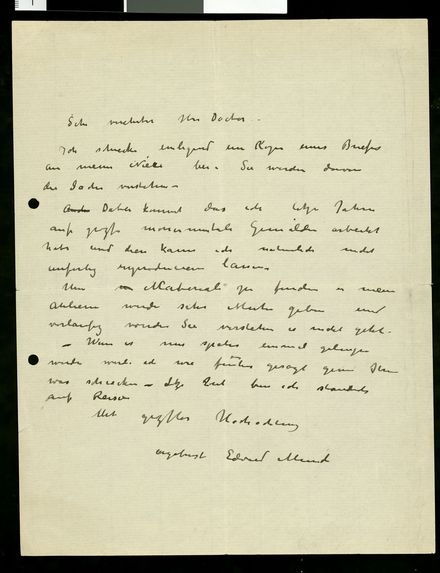 Sehr verehrter Herr Doctor –
Ich sende einliegend ein Kopie eines Briefes
an meine Nice bei. Sie werden davon
die Sache verstehen –
Dabei kommt das ich letzte Jahren
auf grosse monumentale Gemälden arbeitet
habe und dies kann ich natürlich nicht
unfertig reproduciren lassen
Um Material zu finden in meine
Atelierer würde sehr Mühe geben und
vorläufig würde Sie verstehen es nicht geht.
– Wenn es mir später einmal gelingen
würde werde ich wie früher gesagt gern Ihnen
was schicken – Zeit bin ich
auf Reisen
Mit grosster Hochachtung
ergebenst Edvard Munch